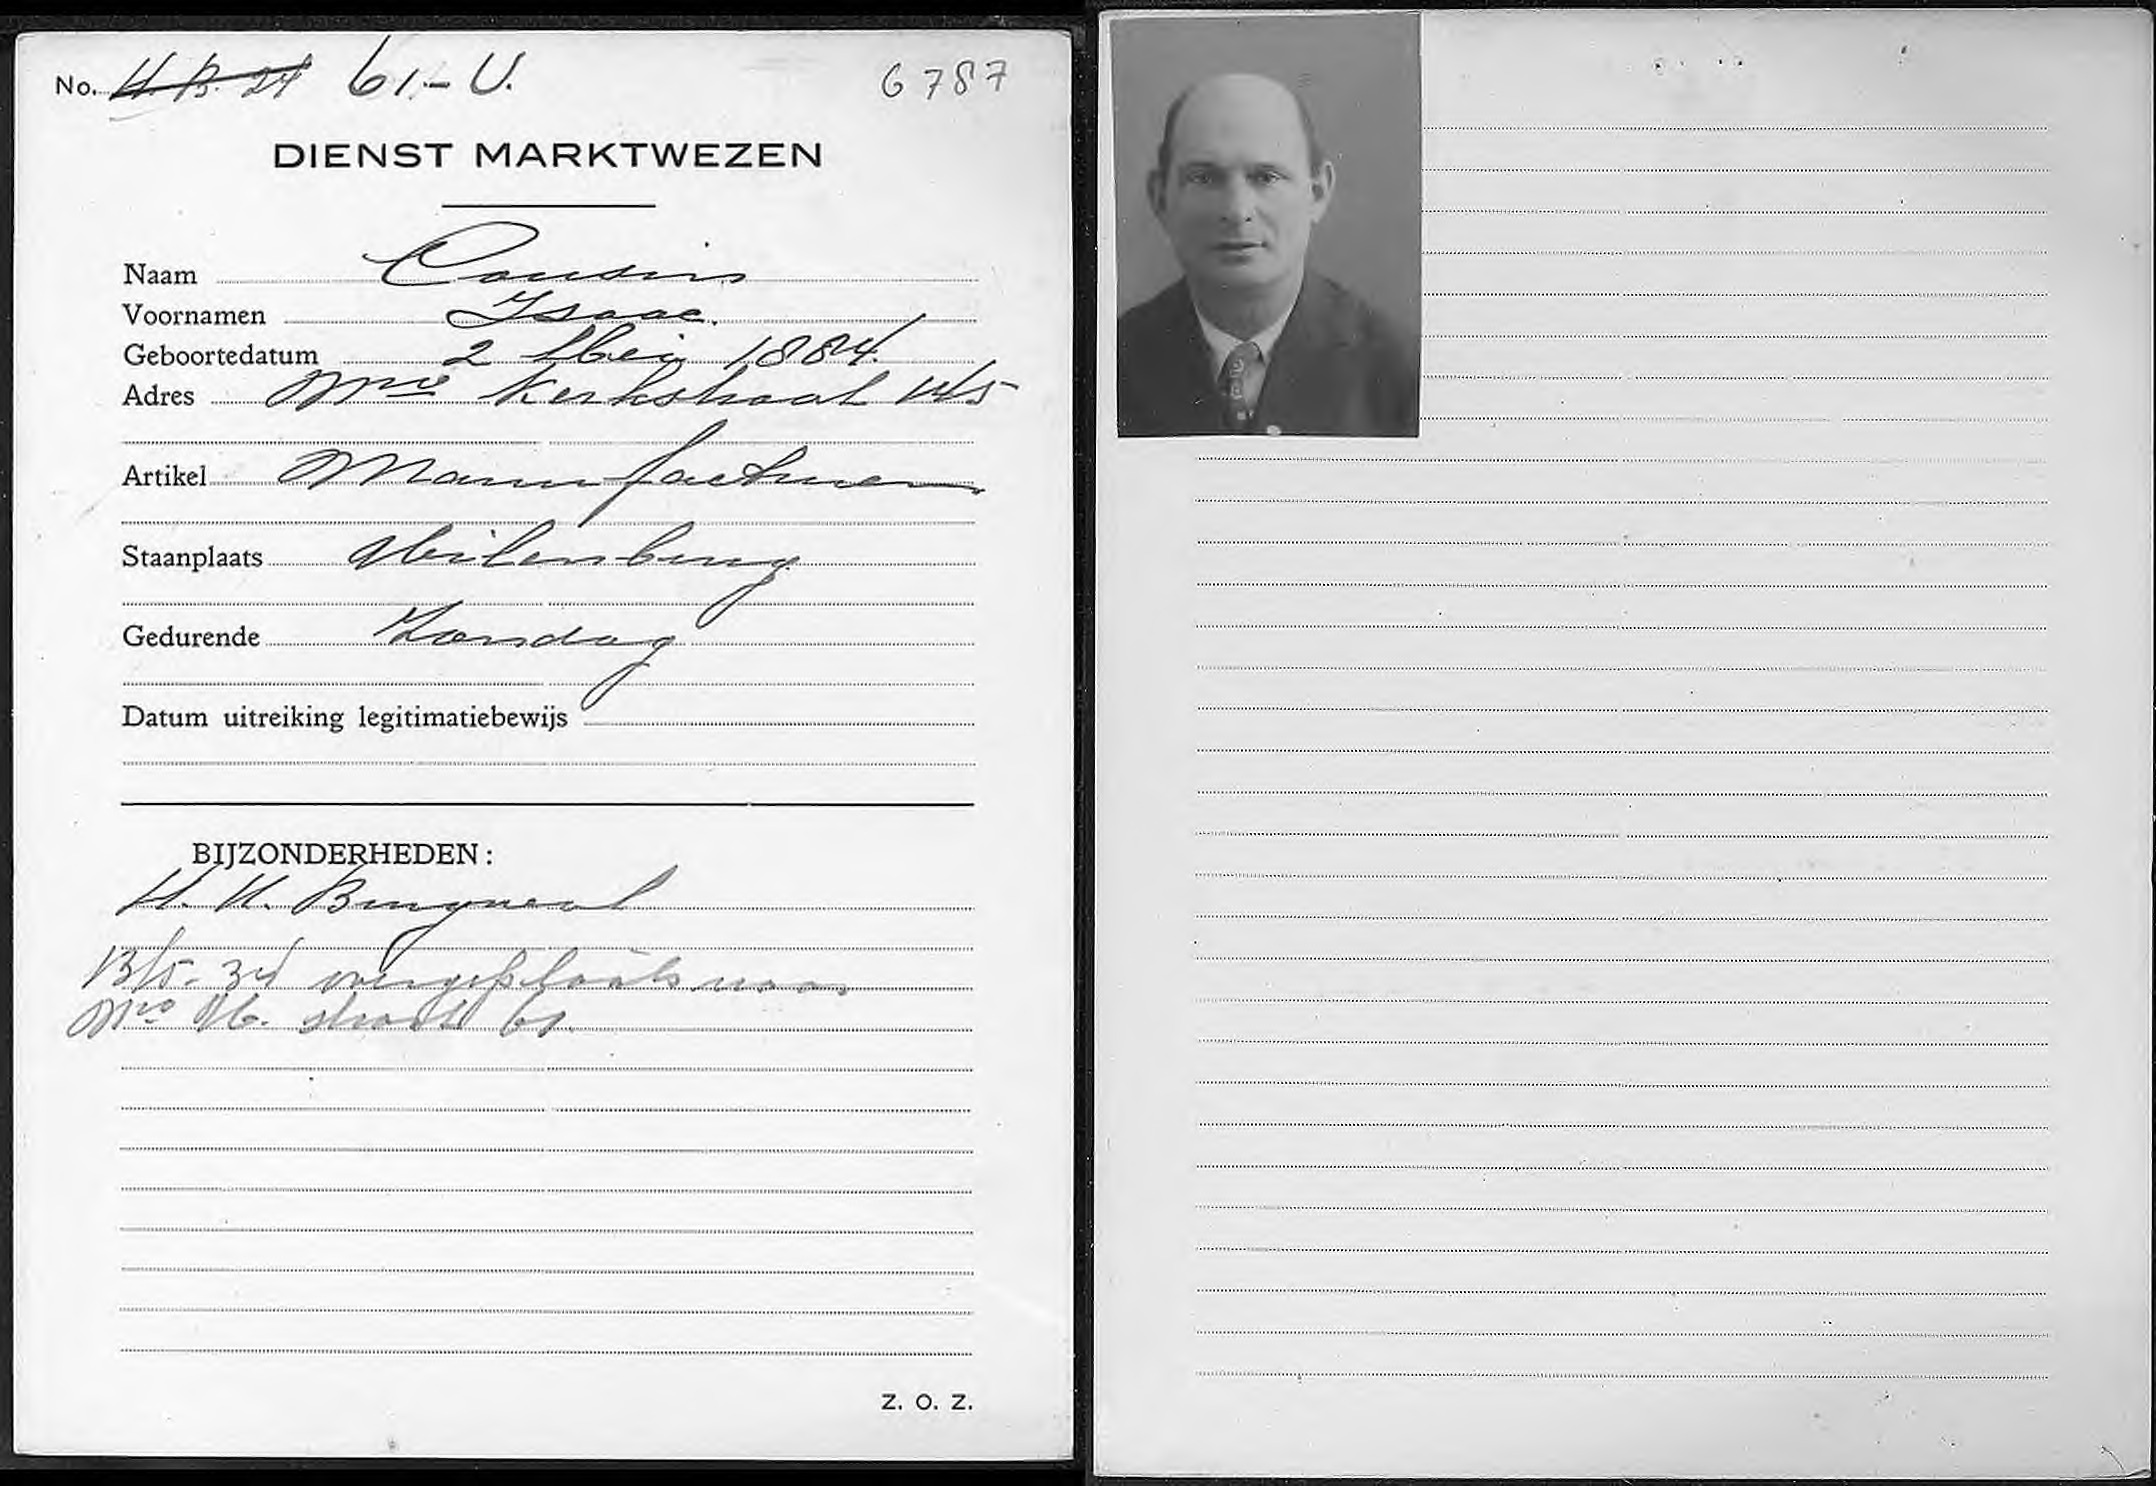 No. H. B. 24 61.- U. 6787
DIENST MARKTWEZEN
Naam Cousin
Voornamen Isaac.
Geboortedatum 2 Mei 1884.
Adres Nwe Kerkstraat 145
Artikel Manufacturen
Staanplaats Uilenburg
Gedurende Zondag
Datum uitreiking legitimatiebewijs
BIJZONDERHEDEN:
H. H. Burgwal
13/5-34 overgeplaatst naar
Nwe straat 61.
Z. O. Z.